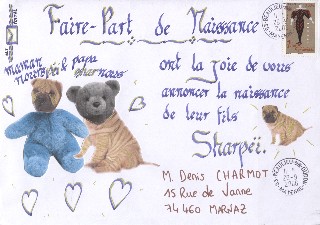 Faire-Part de Naissance
maman & papa
ont la joie de vous
annoncer la naissance
de leur fils
Sharpeï.
M. Denis CHARMOT
15 Rue de Vanne
74460 MARNAZ